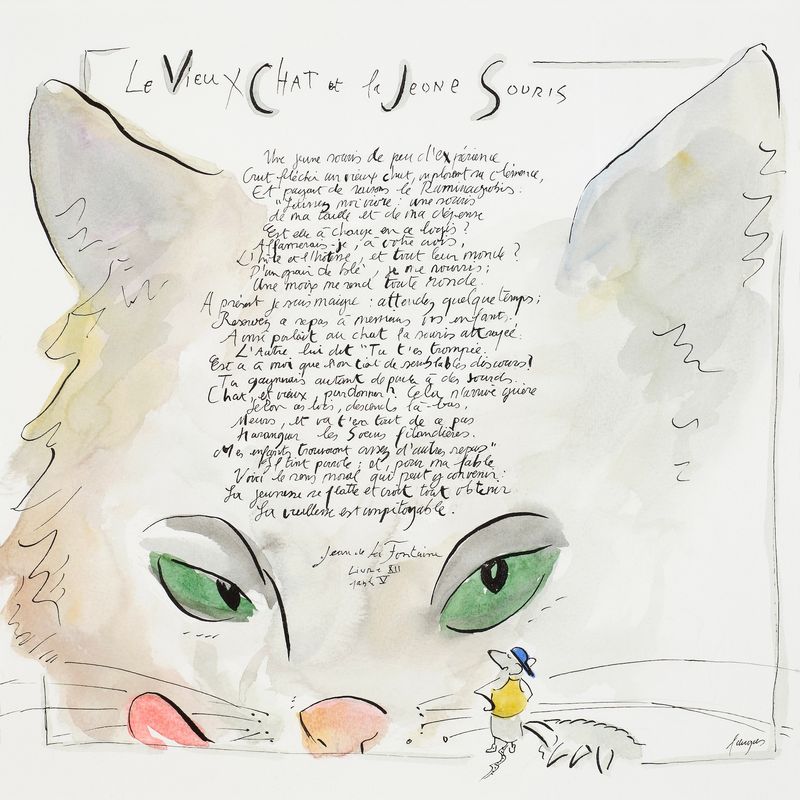 Le Vieux Chat et la Jeune Souris
Une jeune souris de peu d'expérience
Crut fléchir un vieux chat, implorant sa clémence,
Et payant de raisons le Raminagrobis.
"Laissez moi vivre : une souris
de ma taille et de ma dépense
Est elle à charge en ce logis ?
Affamerais-je, à votre avis,
L'hôte et l'hôtesse, et tout leur monde ?
D'un grain de blé, je me nourris ;
Une noix me rend toute ronde.
A présent je suis maigre : attendez quelque temps ;
Réservez ce repas à messieurs vos enfants.
Ainsi parlait au chat la souris attrapée.
L'Autre lui dit "Tu t'es trompée.
Est ce à moi que l'on tient de semblables discours ?
Tu gagnerais autant de parler à des sourds.
Chat, et vieux, pardonner ? Cela n'arrive guère
Selon ces lois, descends là-bas,
Meurs, et va t'en tout de ce pas
Haranguer les Soeurs filandières.
Mes enfants trouveront assez d'autres repas"
Il tint parole ; et, pour ma fable
Voici le sens moral qui peut y convenir :
La jeunesse se flatte et croit tout obtenir
La vieillesse est impitoyable.
Jean de La Fontaine
Livre XII
fable V